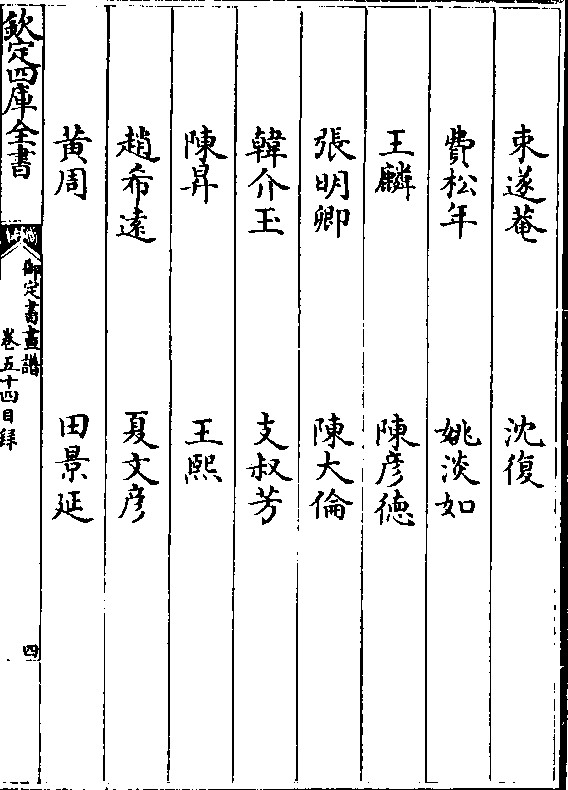 束遂菴 沈復
費松年 姚淡如
王麟 陳彦徳
張明卿 陳大倫
韓介玉 支叔芳
陳昇 王熙
趙希遠 夏文彦
黄周 田景延
欽定四庫全書
御定書畫譜
卷五十四目録
四